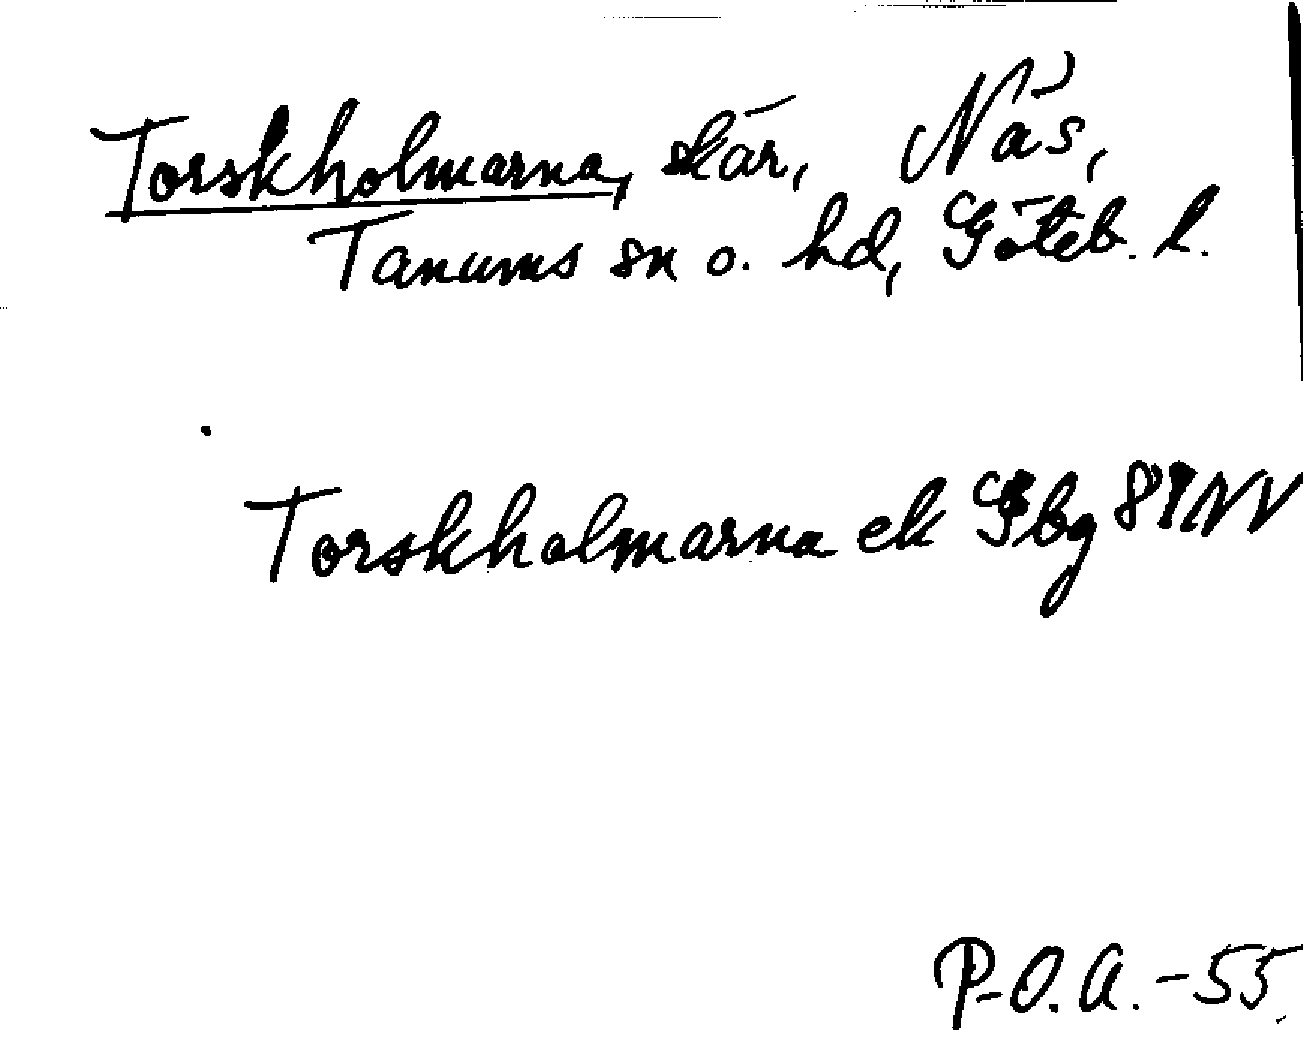 Torskholmarna, skär, Näs,
Tanums sn o. hd, Göteb. l.
Torskholmarna ek Gbg 81 NV
P-O.A.-55